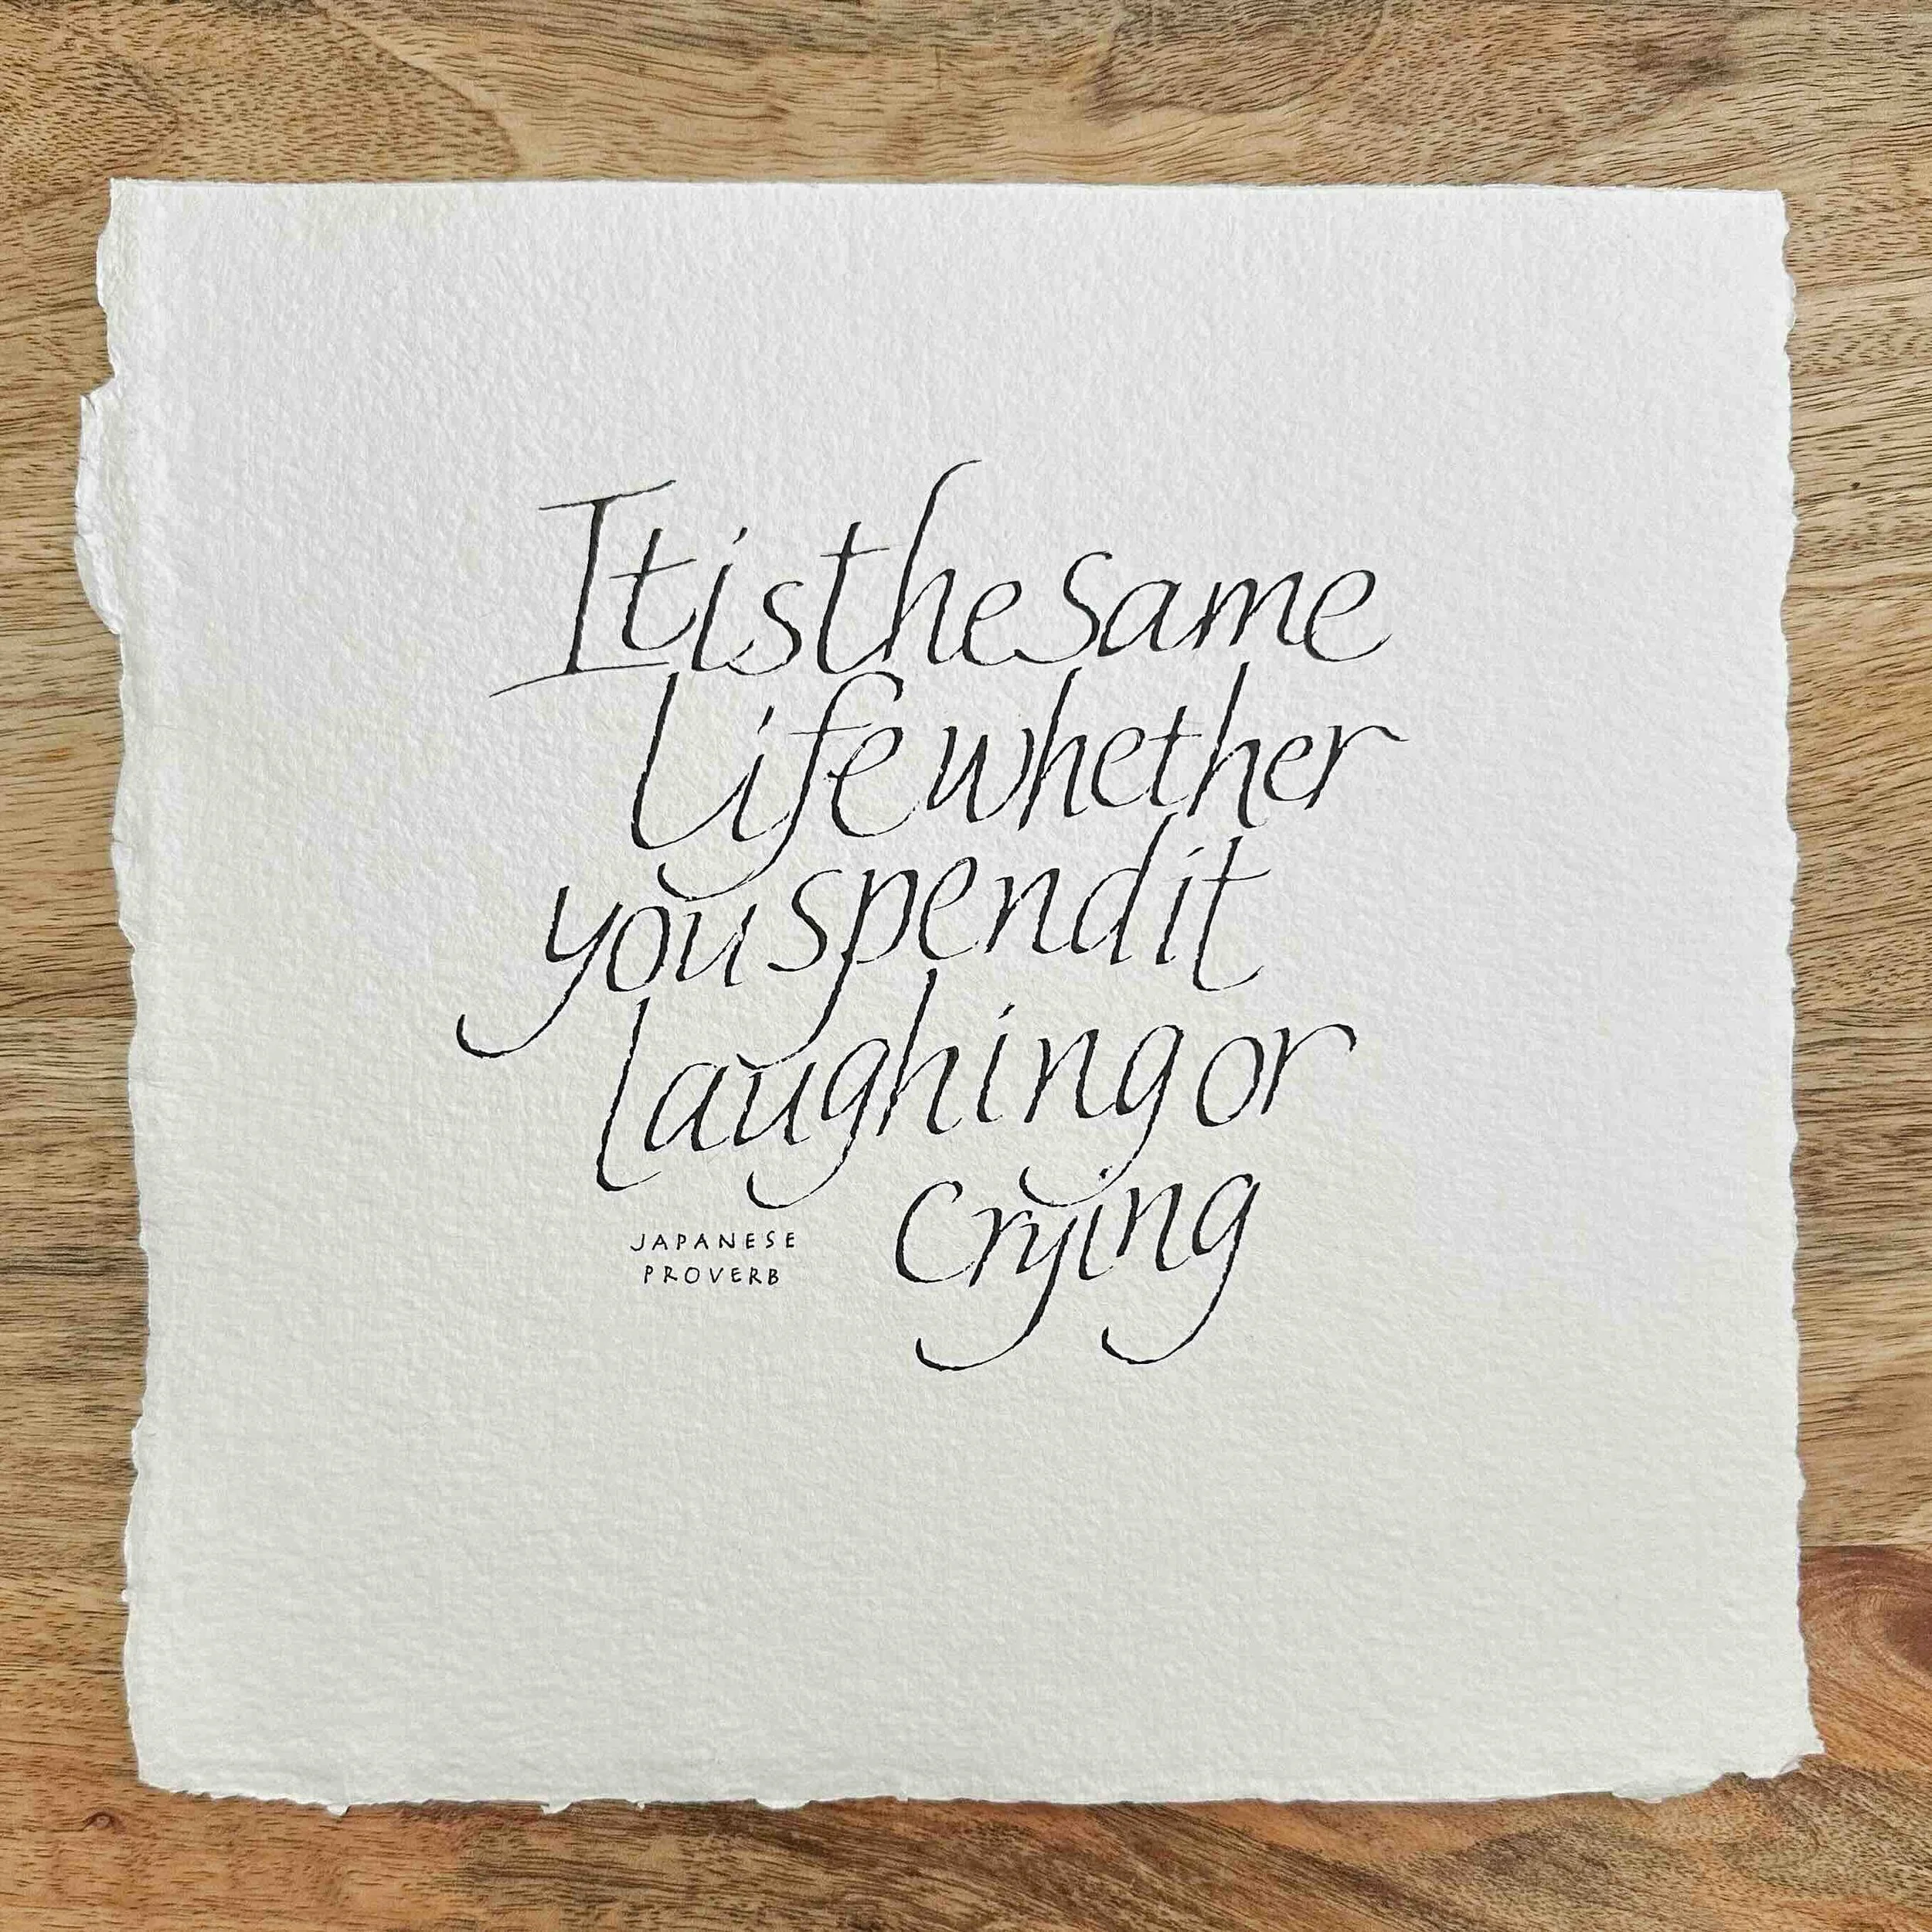 It is the same
life whether
you spend it
laughing or
crying
JAPANESE
PROVERB